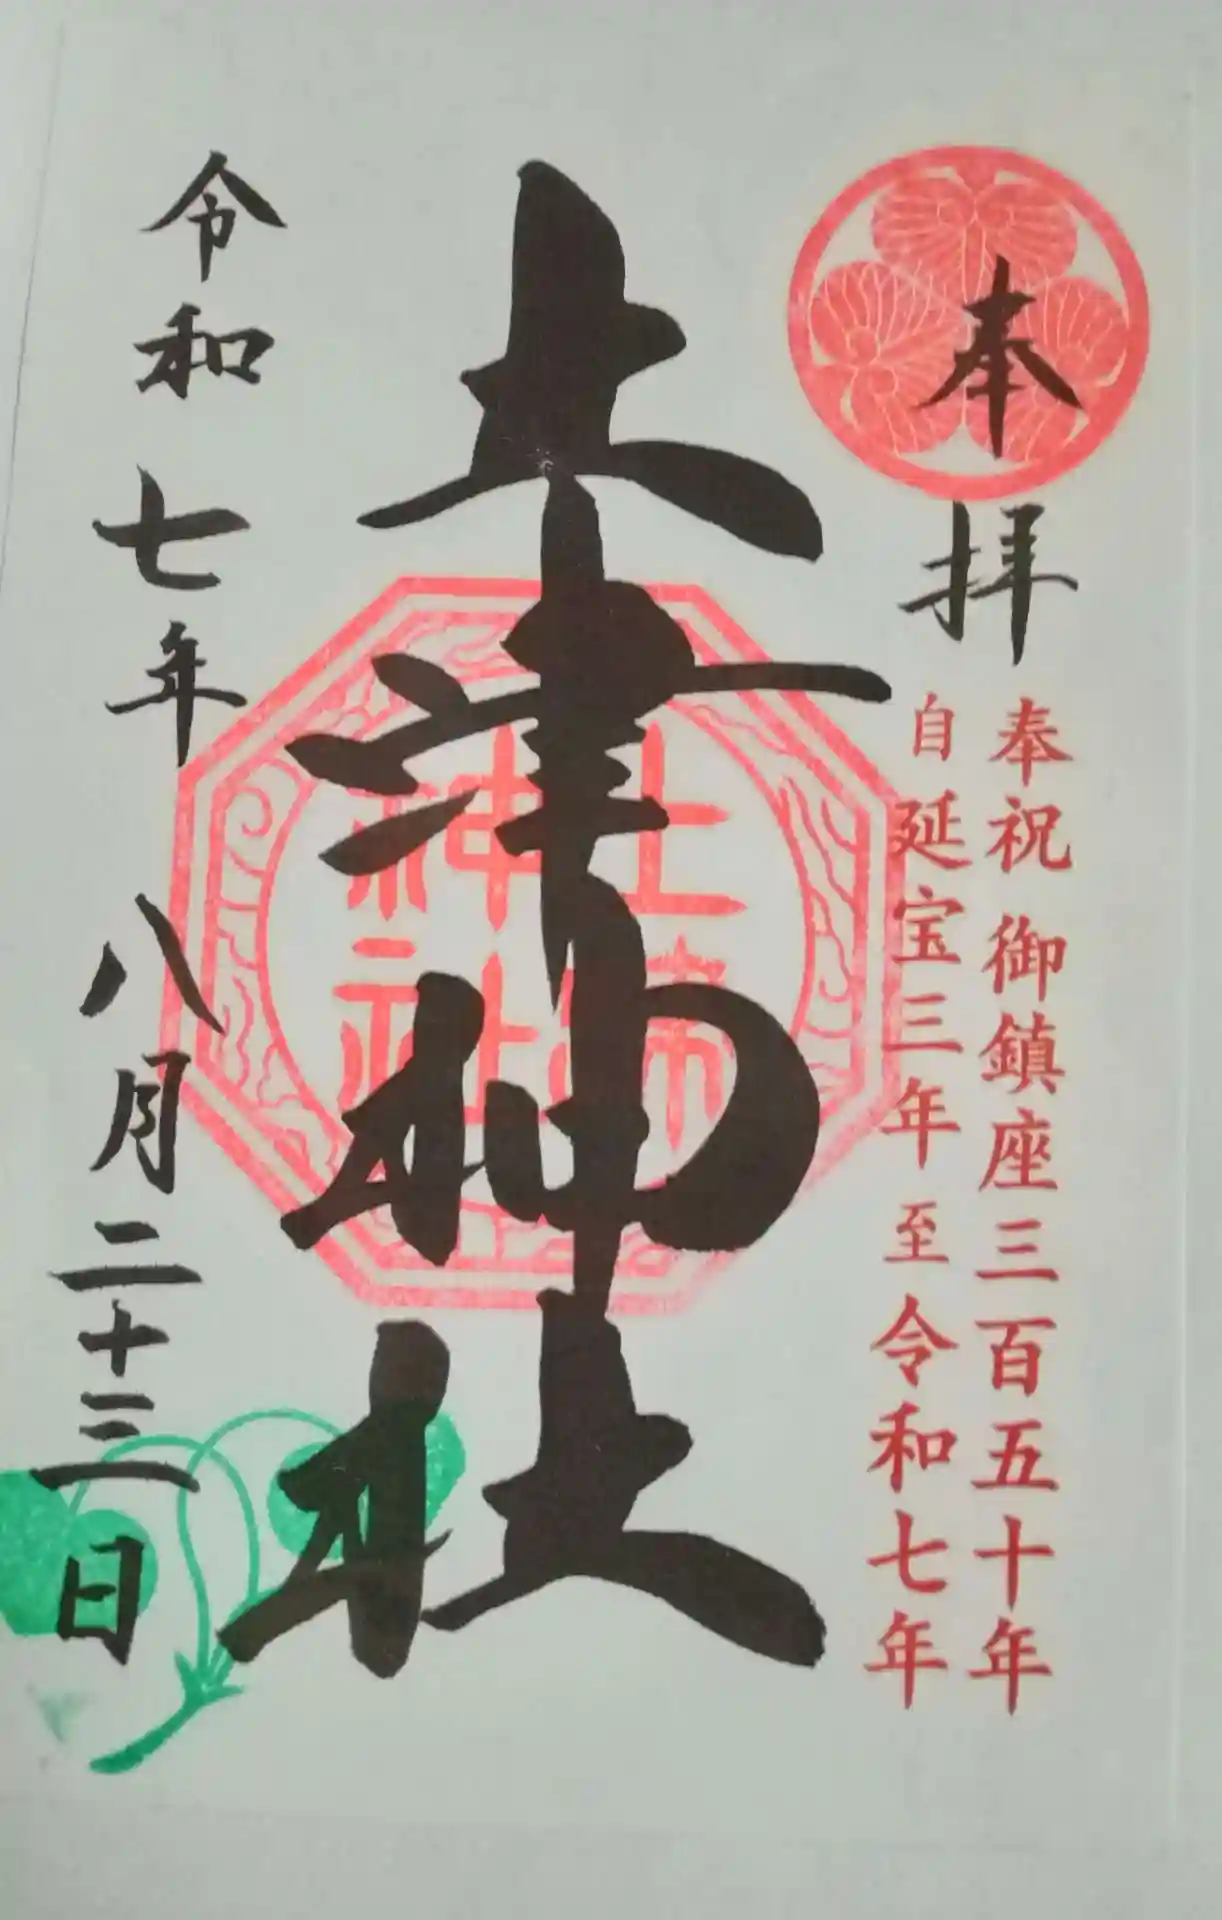 奉拝
奉祝 御鎮座三百五十年
自延宝三年 至令和七年
土津神社
土津
神社
令和七年八月二十三日